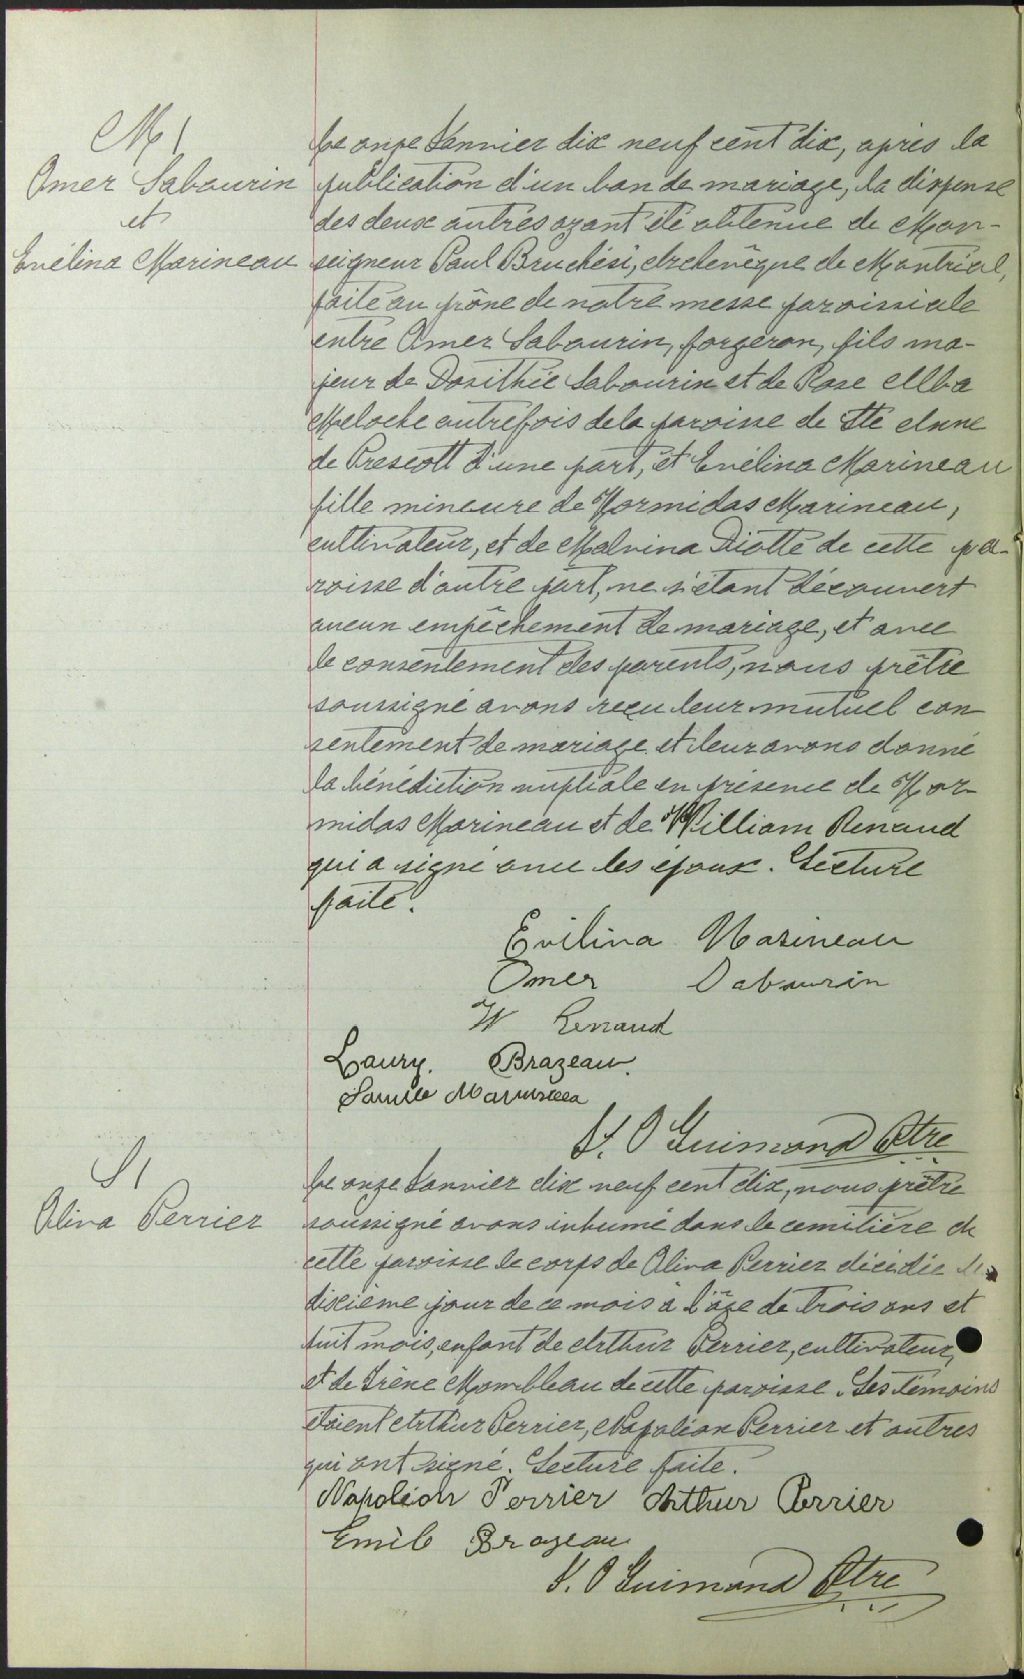 M 1
Omer Sabourin
et
Evélina Marineau
Le onze Janvier dix neuf cent dix, après la
publication d'un ban de mariage, la dispense
des deux autres ayant été obtenue de Mon-
seigneur Paul Bruchési, Archevêque de Montréal,
faite au prône de notre messe paroissiale
entre Omer Sabourin, forgeron, fils ma-
jeur de Dosithée Sabourin et de Rose Alba
Meloche autrefois de la paroisse de Ste Anne
de Prescott d'une part, et Evélina Marineau
fille mineure de Hormidas Marineau,
cultivateur, et de Malvina Diotte de cette pa-
roisse d'autre part, ne s'étant découvert
aucun empêchement de mariage, et avec
le consentement des parents, nous prêtre
soussigné avons reçu leur mutuel con-
sentement de mariage et leur avons donné
la bénédiction nuptiale en présence de Hor-
midas Marineau et de William Renaud
qui a signé avec les époux. Lecture
faite.
Evilina Marineau
Omer Sabourin
W Renaud
Laury. Brazeau.
J. O Guimond Ptre
S 1
Oliva Perrier
Le onze Janvier dix neuf cent dix, nous prêtre
soussigné avons inhumé dans le cemitière de
cette paroisse le corps de Oliva Perrier décédée le
dixième jour de ce mois à l'âge de trois ans et
huit mois, enfant de Arthur Perrier, cultivateur,
et de Irène Mombleau de cette paroisse. Les témoins
étaient Arthur Perrier, Napoléon Perrier et autres
qui ont signé. Lecture faite.
Napoléon Perrier Arthur Perrier
Emile Brazeau
J. O Guimond Ptre